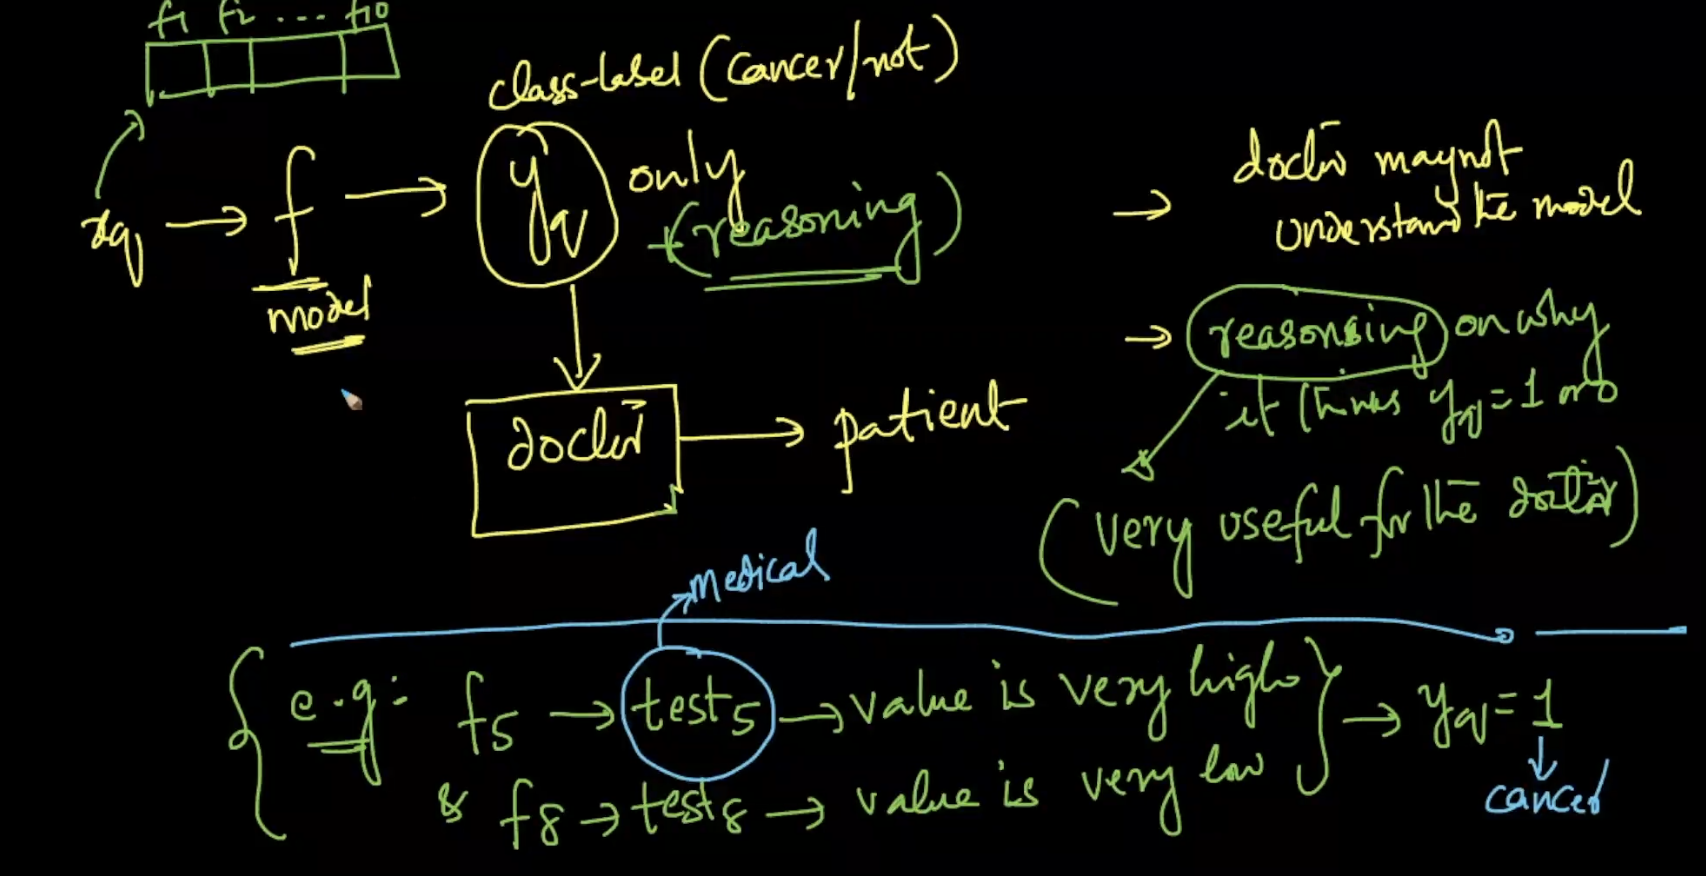 f1 f2 .... f10
class-label (cancer/not)
xq → f → yq only
+(reasoning)
model
→ doctor may not
understand the model
→ reasonsing on why
it thinks yq = 1 or 0
(very useful for the doctor)
doctor → patient
medical
e.g: f5 → test5 → value is very high
& f8 → test8 → value is very low
→ yq = 1
cancer